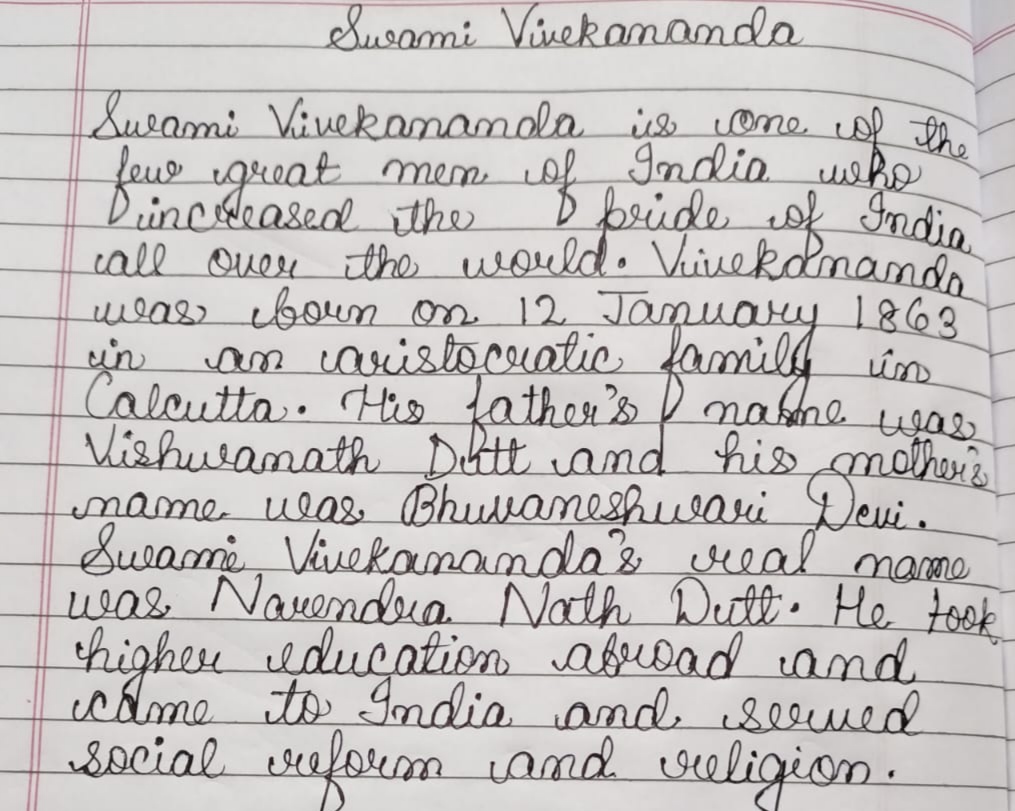 Swami Vivekananda
Swami Vivekananda is one of the
few great men of India who
increased the pride of India
all over the world. Vivekananda
was born on 12 January 1863
in an aristocratic family in
Calcutta. His father's name was
Vishwanath Dutt and his mother's
name was Bhuvaneshwari Devi.
Swami Vivekananda's real name
was Narendra Nath Dutt. He took
higher education abroad and
came to India and served
social reform and religion.